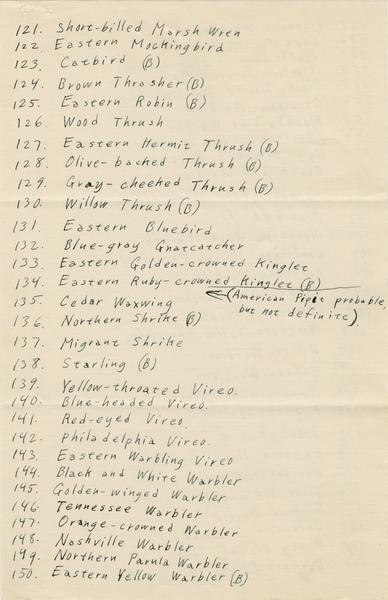 121. Short-billed Marsh Wren
122. Eastern Mockingbird
123. Catbird (B)
124. Brown Thrasher (B)
125. Eastern Robin (B)
126. Wood Thrush
127. Eastern Hermit Thrush (B)
128. Olive-backed Thrush (B)
129. Gray-cheeked Thrush (B)
130. Willow Thrush (B)
131. Eastern Bluebird
132. Blue-gray Gnatcatcher
133. Eastern Golden-crowned Kinglet
134. Eastern Ruby-crowned Kinglet (B)
(American Pipit probable,
but not definite).
135. Cedar Waxwing
136. Northern Shrike (B)
137. Migrant Shrike
138. Starling (B)
139. Yellow-throated Vireo.
140. Blue-headed Vireo.
141. Red-eyed Vireo.
142. Philadelphia Vireo.
143. Eastern Warbling Vireo
144. Black and White Warbler
145. Golden-winged Warbler
146. Tennessee Warbler
147. Orange-crowned Warbler
148. Nashville Warbler
149. Northern Parula Warbler
150. Eastern Yellow Warbler (B)